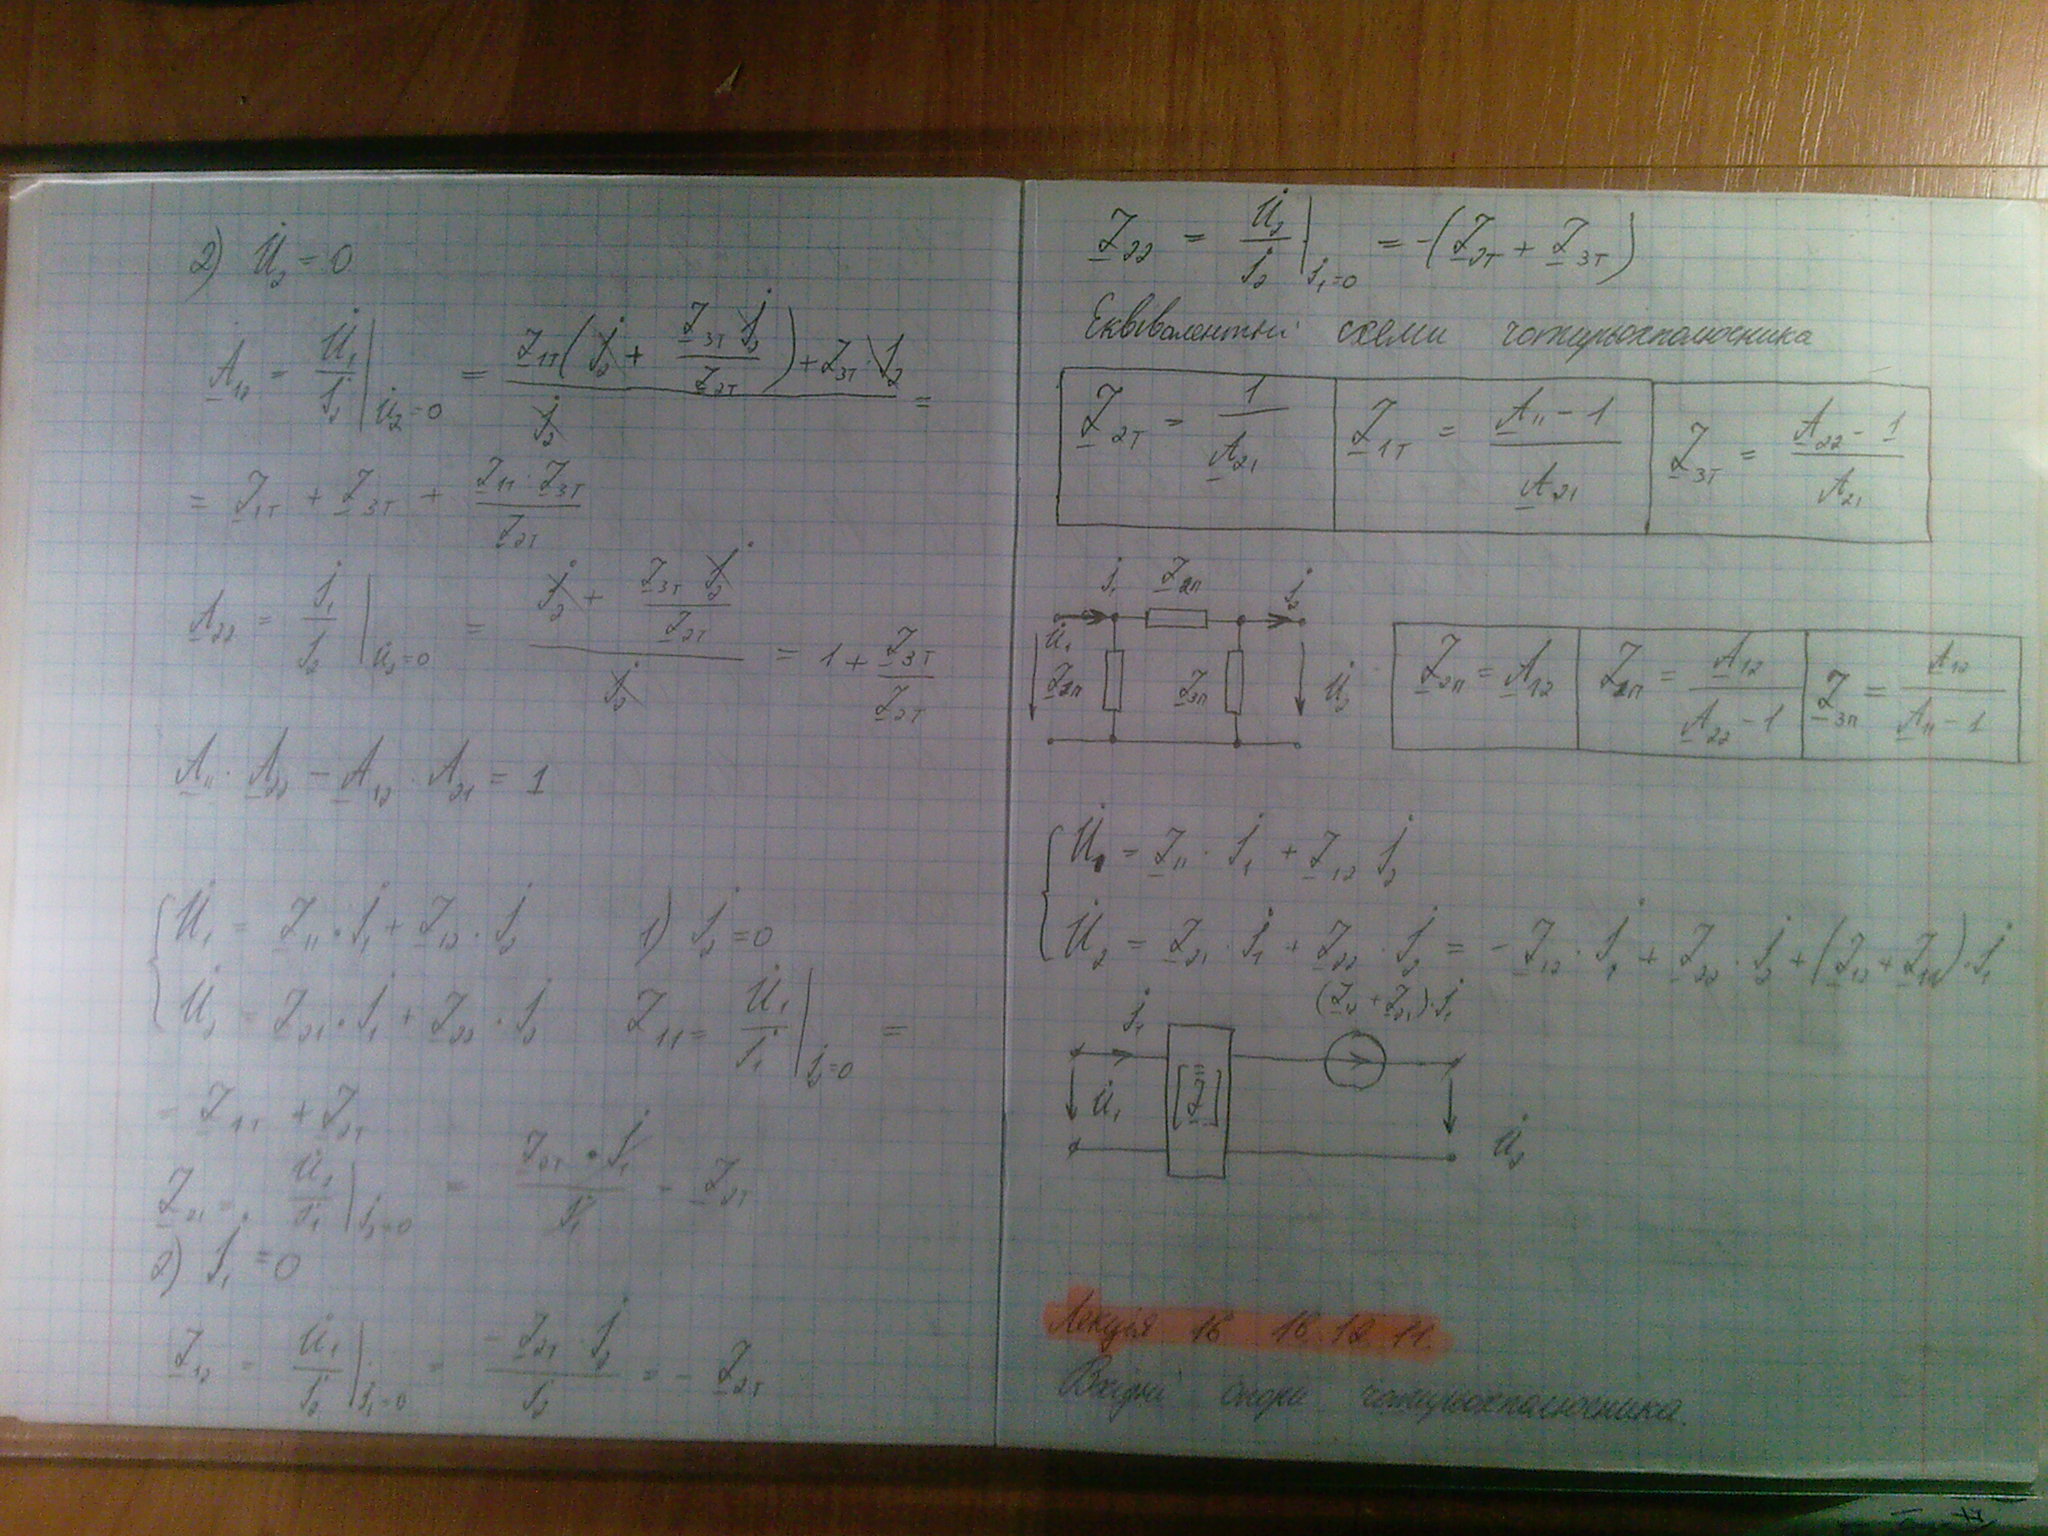 2) U̇₂ = 0
A₁₂ = U̇₁/İ₂ |U̇₂=0 = (Z₁т(İ₂ + Z₃т İ₂/Z₂т) + Z₃т · İ₂)/İ₂ =
= Z₁т + Z₃т + Z₁т · Z₃т/Z₂т
A₂₂ = İ₁/İ₂ |U̇₂=0 = (İ₂ + Z₃т İ₂/Z₂т)/İ₂ = 1 + Z₃т/Z₂т
A₁₁ · A₂₂ − A₁₂ · A₂₁ = 1
U̇₁ = Z₁₁ · İ₁ + Z₁₂ · İ₂ 1) İ₂ = 0
U̇₂ = Z₂₁ · İ₁ + Z₂₂ · İ₂ Z₁₁ = U̇₁/İ₁ |İ₂=0 =
= Z₁т + Z₂т
Z₂₁ = U̇₂/İ₁ |İ₂=0 = Z₂т · İ₁/İ₁ = Z₂т
2) İ₁ = 0
Z₁₂ = U̇₁/İ₂ |İ₁=0 = −Z₂т · İ₂/İ₂ = − Z₂т
Z₂₂ = U̇₂/İ₂ |İ₁=0 = −(Z₂т + Z₃т)
Еквівалентні схеми чотирьохполюсника
Z₂т = 1/A₂₁ Z₁т = (A₁₁ − 1)/A₂₁ Z₃т = (A₂₂ − 1)/A₂₁
İ₁ Z₂п İ₂
U̇₁ Z₃п U̇₂
Z₂п = A₁₂ A₁₂/(A₂₂ − 1) Z₃п = A₁₂/(A₁₁ − 1)
U̇₁ = Z₁₁ · İ₁ + Z₁₂ İ₂
U̇₂ = Z₂₁ · İ₁ + Z₂₂ · İ₂ = − Z₁₂ · İ₁ + Z₂₂ · İ₂ + (Z₁₂ + Z₂₁) · İ₁
(Z₁₂ + Z₂₁) · İ₁
İ₁
U̇₁ [Z] U̇₂
Лекція 16 16.12.11.
Вхідні опори чотирьохполюсника.